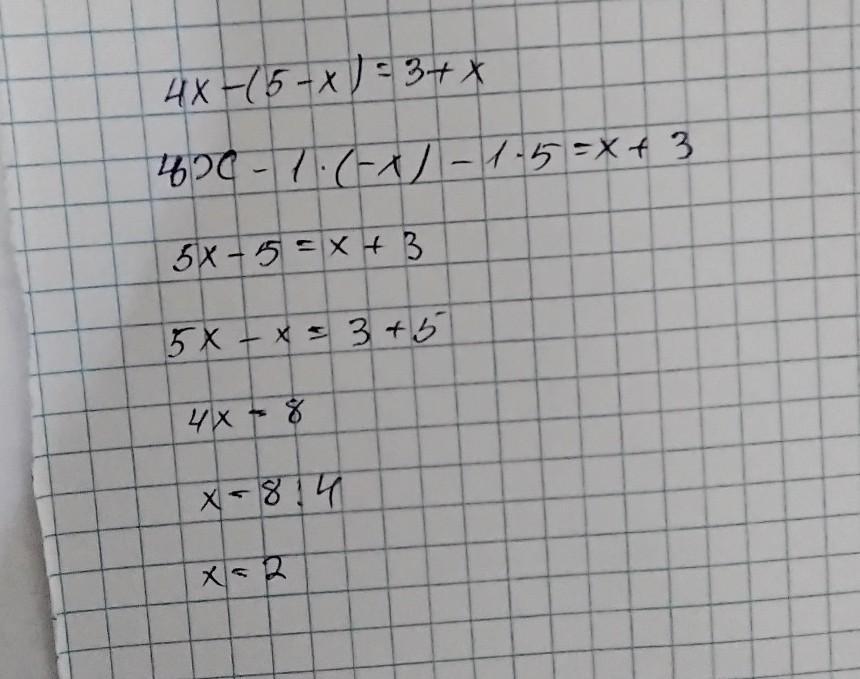 4x-(5-x)=3+x
4x-1·(-x)-1·5=x+3
5x-5=x+3
5x-x=3+5
4x=8
x=8:4
x=2